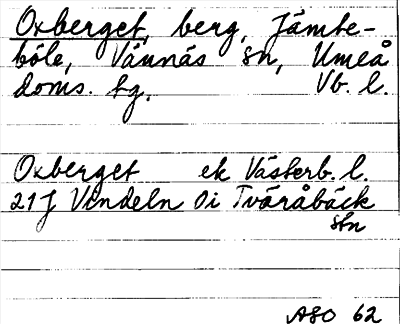 Oxberget, berg, Jämte-
böle, Vännäs sn, Umeå
doms. tg, Vb. l.
Oxberget ek Västerb. l.
21J Vindeln 0i Tväråbäck
stn
ASO 62